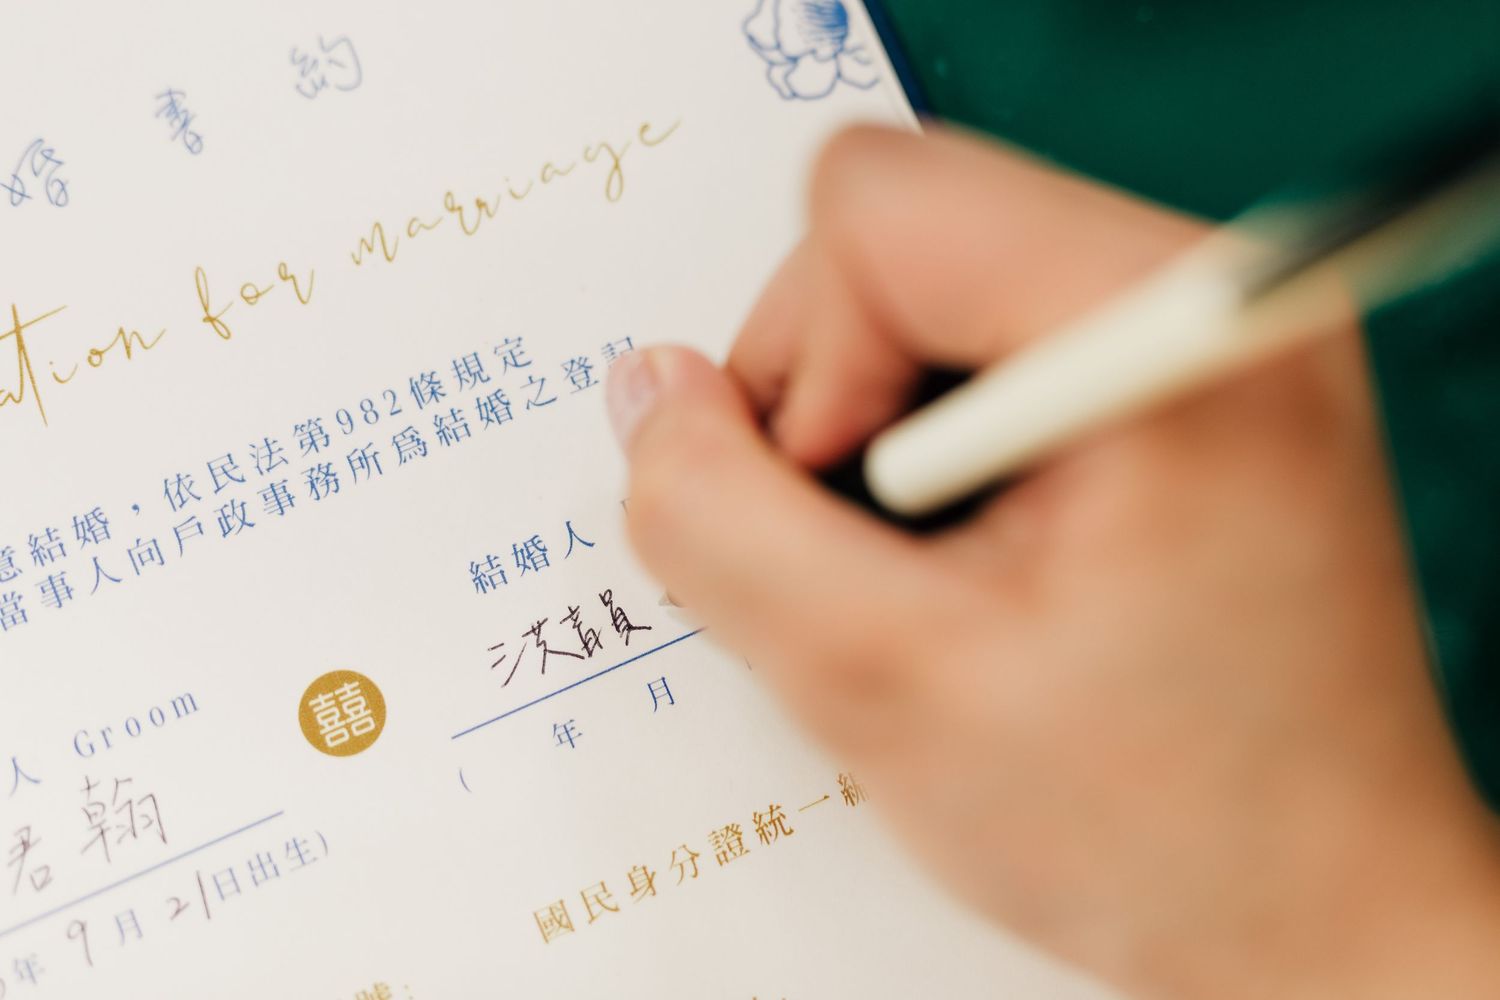 婚書約
ation for marriage
意結婚，依民法第982條規定
當事人向戶政事務所爲結婚之登記
結婚人
洪
年 月
人 Groom
囍
君翰
年9月21日出生)
(
國民身分證統一編
號: